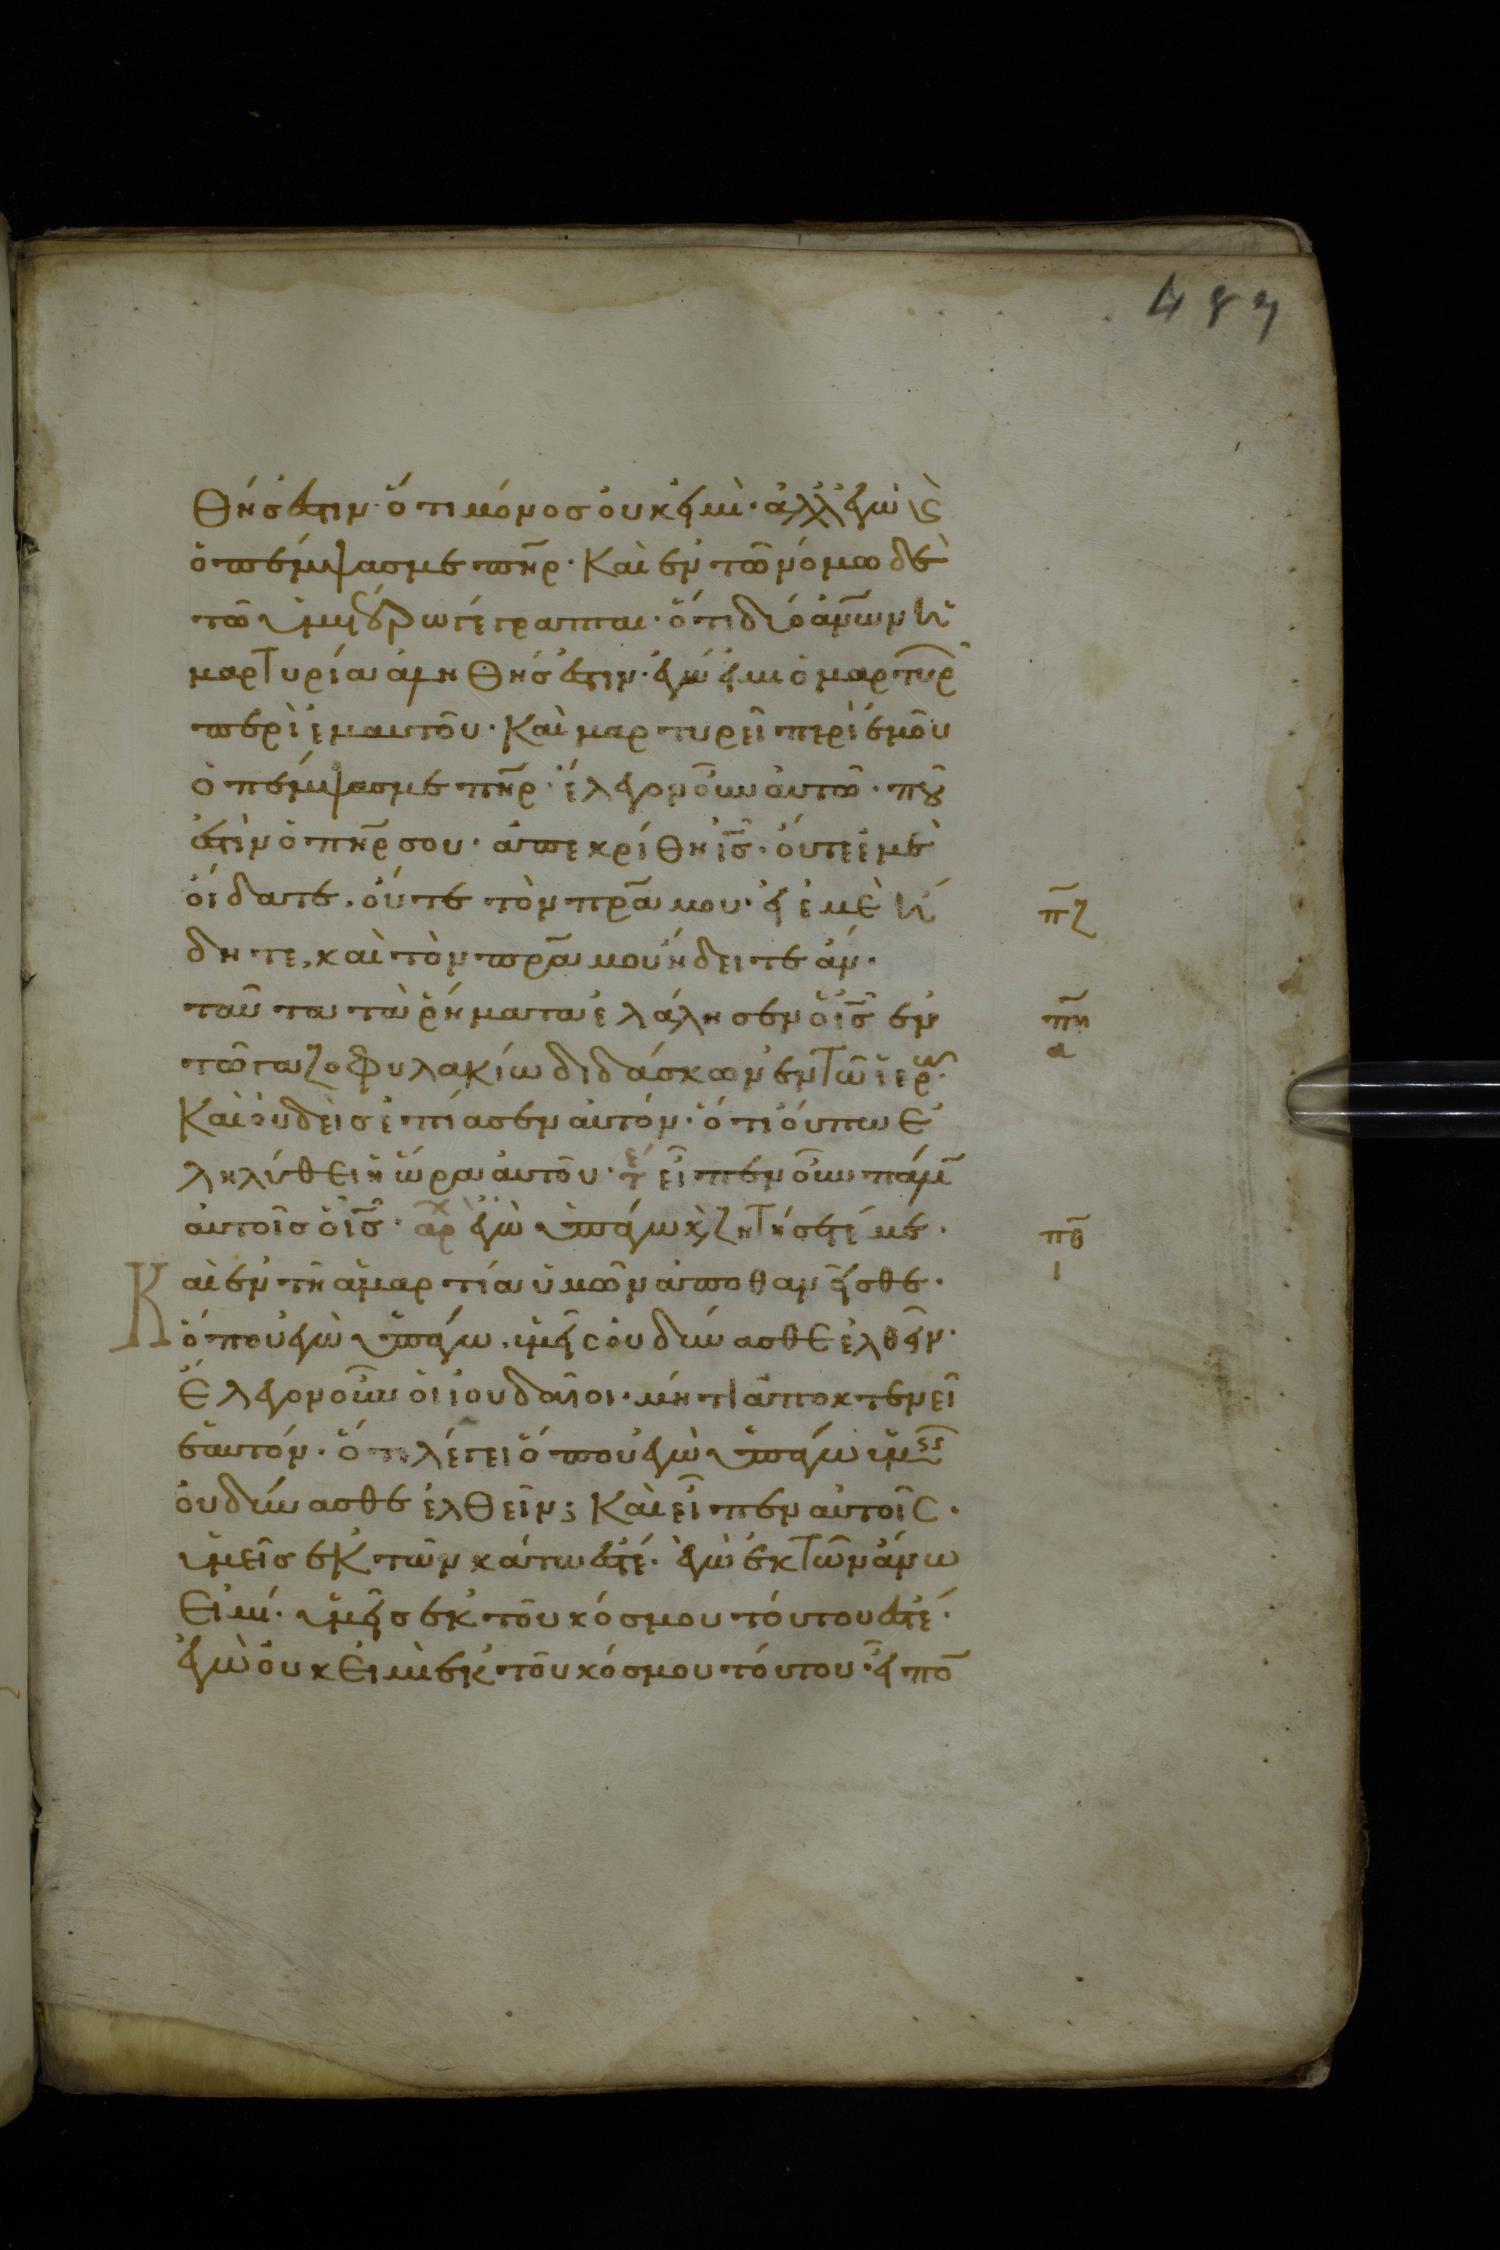 487
θής ἐστιν· ὅτι μόνος οὐκ εἰμὶ· ἀλλ' ἐγὼ καὶ
ὁ πέμψας με πη̅ρ· Καὶ ἐν τῶ νόμω δὲ
τῶ ὑμετέρω γέγραπται· ὅτι δύο ἀν̅ων ἡ
μαρτυρία ἀληθής ἐστιν· ἐγώ εἰμι ὁ μαρτυρ
περὶ ἐμαυτοῦ· Καὶ μαρτυρεῖ περὶ ἐμοῦ
ὁ πέμψας με πη̅ρ· ἔλεγον οὖν αὐτῶ· ποῦ
ἐστὶν ὁ πη̅ρ σου· ἀπεκρίθη ις̅· οὔτε ἐμὲ
οἴδατε, οὔτε τὸν πρ̅α μου· εἰ ἐμὲ ἤ
δητε, καὶ τὸν πρ̅α μου ἤδειτε ἄν·
π̅ζ
ταῦτα τὰ ῥήματα ἐλάλησεν ὁ ις̅ ἐν
π̅η
α
τῶ γαζοφυλακίω διδάσκων ἐν τῶ ἱερῶ·
Καὶ οὐδεὶς ἐπίασεν αὐτόν· ὅτι οὔπω ἐ
ληλύθει ἡ ὥρα αὐτοῦ· εἶπεν οὖν πάλιν
αὐτοῖς ὁ ις̅· αρχ ἐγὼ ὑπάγω καὶ ζητήσετέ με·
π̅θ
ι
Καὶ ἐν τῆ ἁμαρτία ὑμῶν ἀποθανεῖσθε·
ὅπου ἐγὼ ὑπάγω, ὑμεῖς οὐ δύνασθε ἐλθεῖν·
Ἔλεγον οὖν οἱ ἰουδαῖοι· μήτι ἀποκτενεῖ
ἑαυτόν· ὅτι λέγει ὅπου ἐγὼ ὑπάγω ὑμεῖς
οὐ δύνασθε ἐλθεῖν; Καὶ εἶπεν αὐτοῖς·
ὑμεῖς ἐκ τῶν κάτω ἐστέ· ἐγὼ ἐκ τῶν ἄνω
εἰμί· ὑμεῖς ἐκ τοῦ κόσμου τούτου ἐστέ·
ἐγὼ οὐκ εἰμὶ ἐκ τοῦ κόσμου τούτου· εἶπο̅